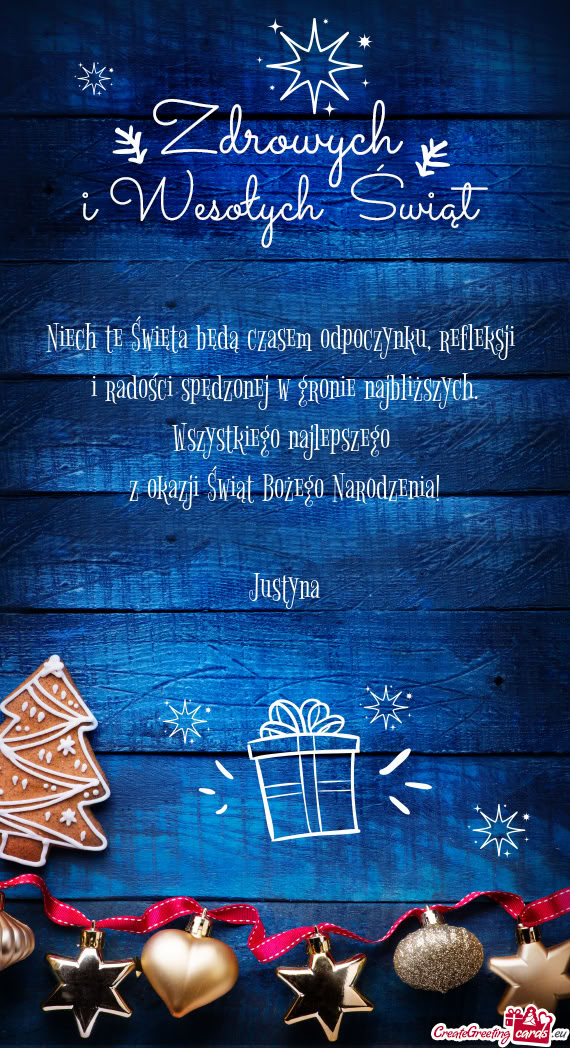 Zdrowych
i Wesołych Świąt
Niech te Święta będą czasem odpoczynku, refleksji
i radości spędzonej w gronie najbliższych.
Wszystkiego najlepszego
z okazji Świąt Bożego Narodzenia!
Justyna
CreateGreetingcards.eu